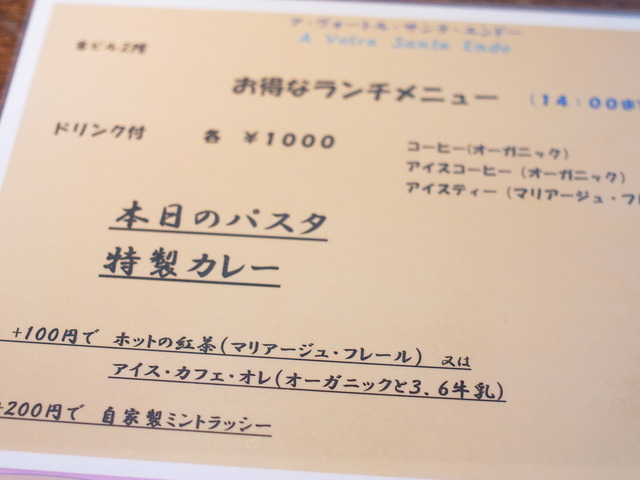 ア・ヴォートル・サンテ・エンドー
A Votre Sante Endo
ビル2階
お得なランチメニュー (14:00ま
ドリンク付 各 ¥1000
コーヒー(オーガニック)
アイスコーヒー (オーガニック)
アイスティー (マリアージュ・フレ
本日のパスタ
特製カレー
+100円で ホットの紅茶(マリアージュ・フレール) 又は
アイス・カフェ・オレ(オーガニックと3.6牛乳)
+200円で 自家製ミントラッシー